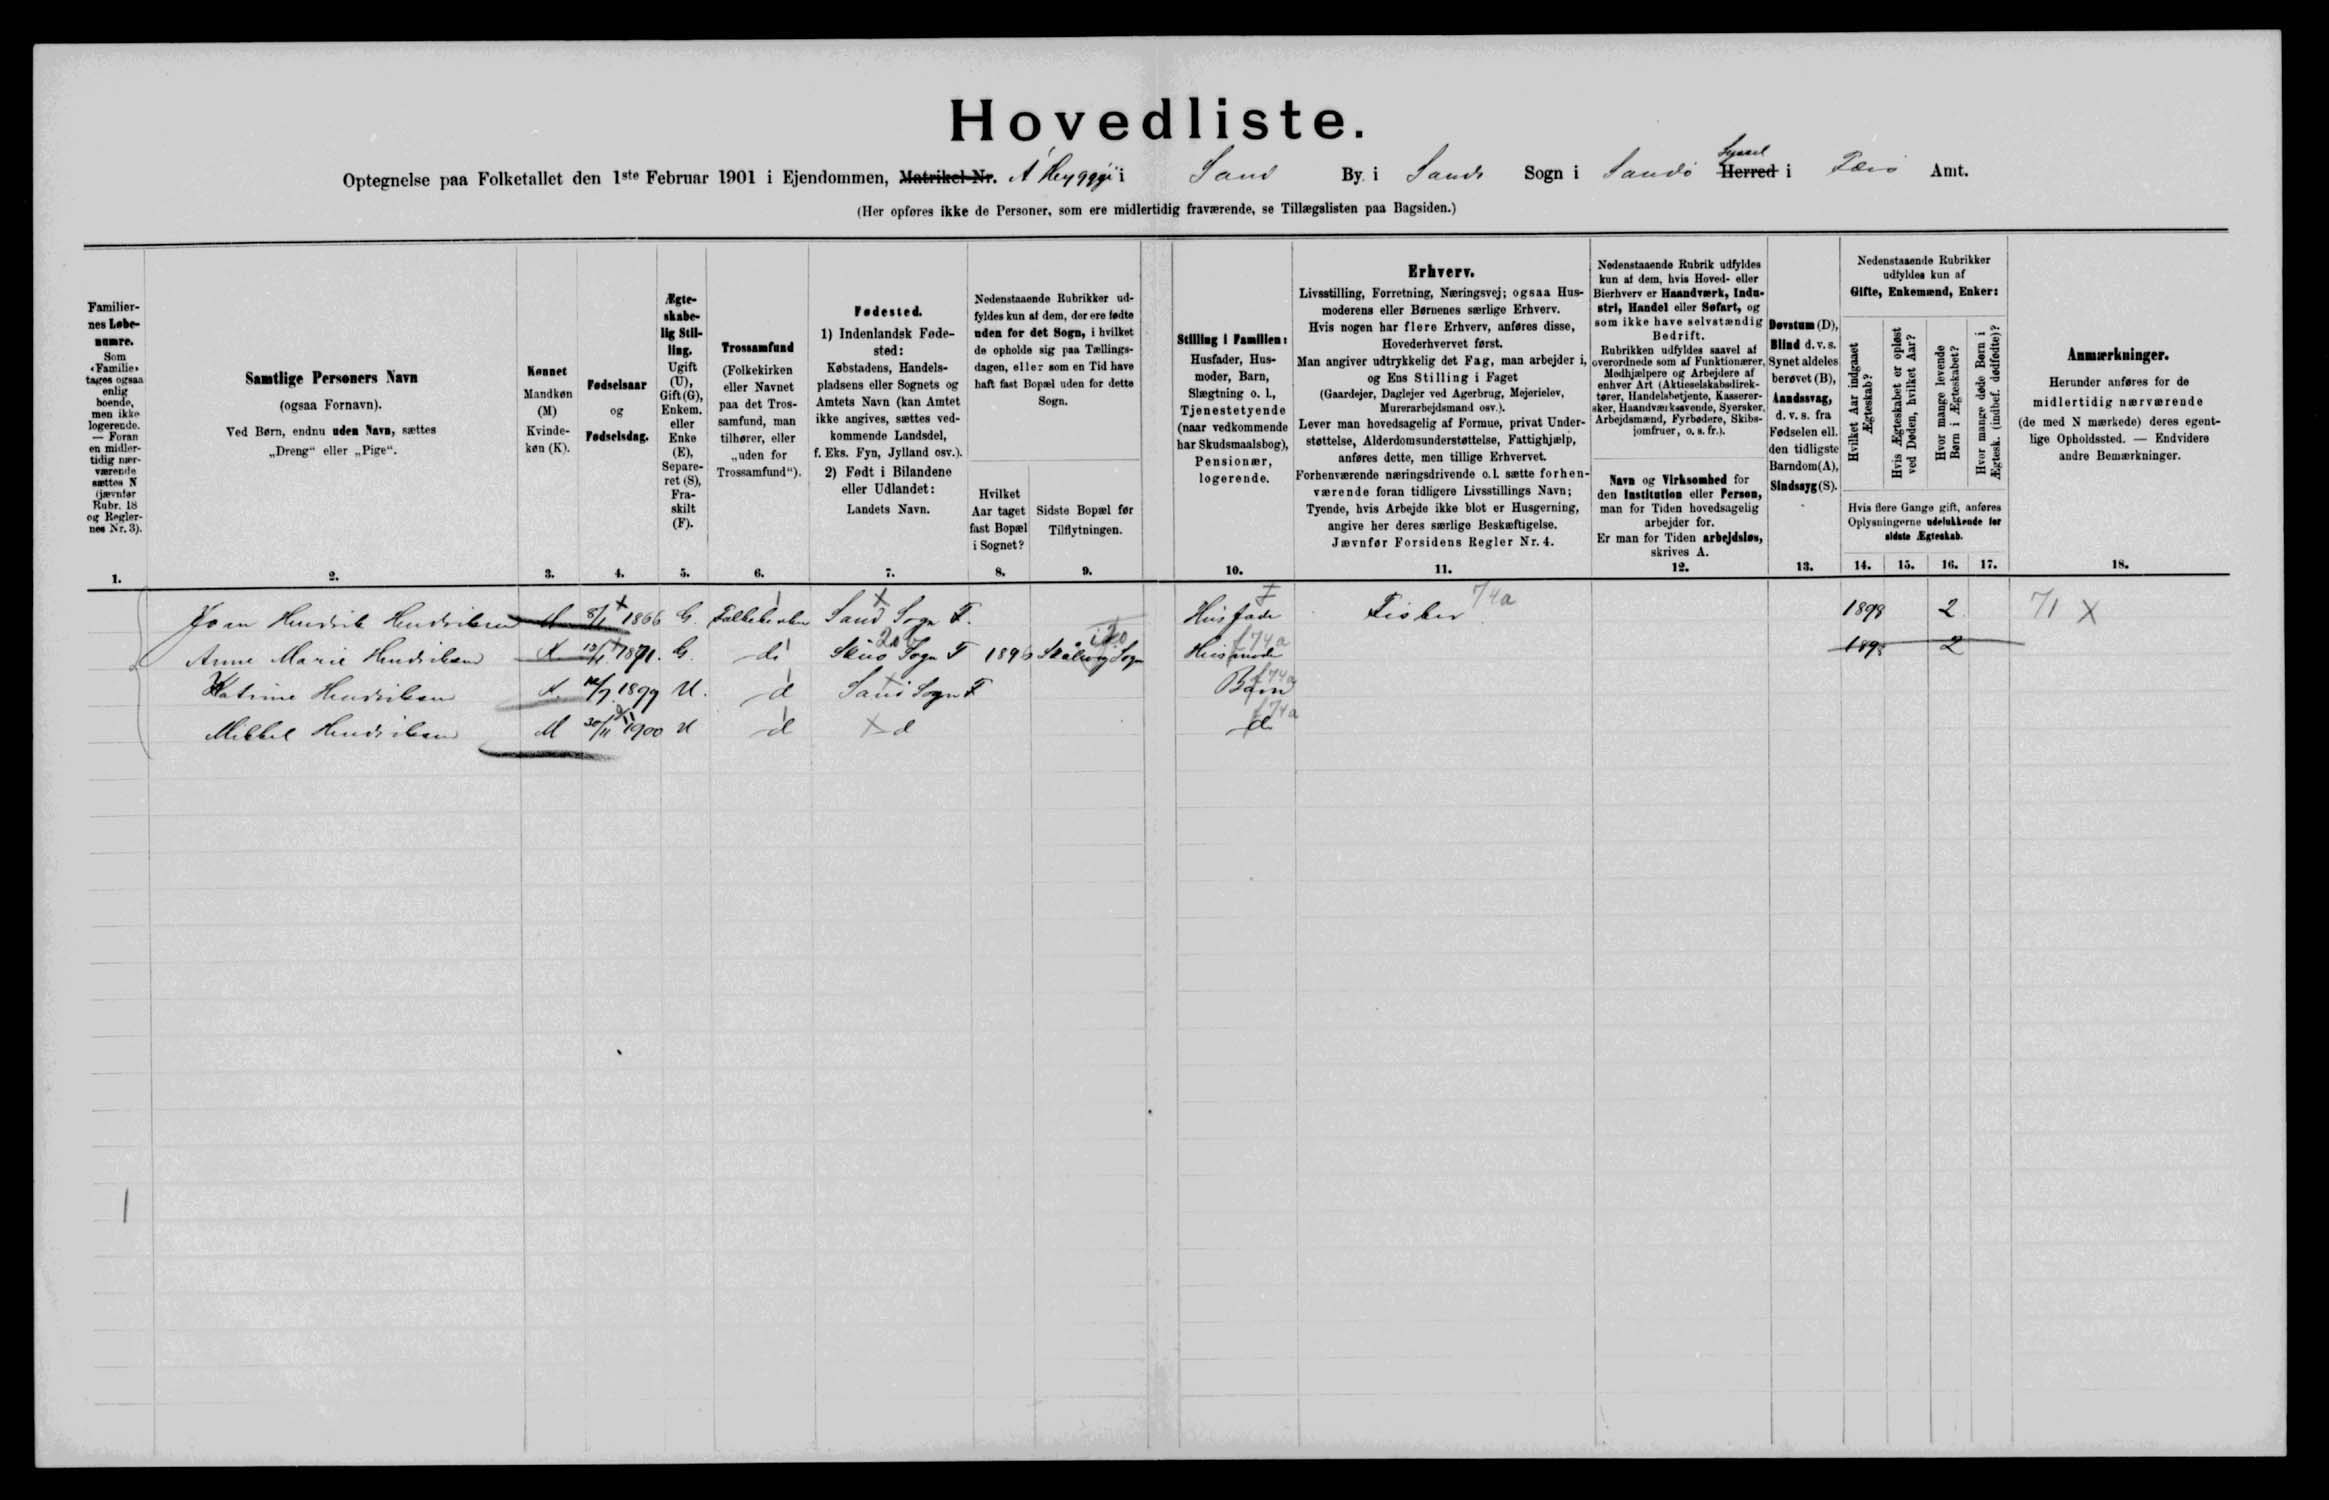 Hovedliste.
Optegnelse paa Folketallet den 1ste Februar 1901 i Ejendommen, Matrikel-Nr. Á Heygggi i Sand By i Sands Sogn i Sandö Herred Syssel i Færö Amt.
(Her opføres ikke de Personer, som ere midlertidig fraværende, se Tillægslisten paa Bagsiden.)
Familiernes Løbenumre.
Som «Familie» tages ogsaa enlig boende, men ikke logerende. — Foran en midlertidig nærværende sættes N (jævnfør Rubr. 18 og Reglernes Nr. 3).
Samtlige Personers Navn
(ogsaa Fornavn).
Ved Børn, endnu uden Navn, sættes
„Dreng“ eller „Pige“.
Kønnet
Mandkøn (M)
Kvindekøn (K).
Fødselsaar
og
Fødselsdag.
Ægteskabelig Stilling.
Ugift (U), Gift (G), Enkem. eller Enke (E), Separeret (S), Fraskilt (F).
Trossamfund
(Folkekirken eller Navnet paa det Trossamfund, man tilhører, eller „uden for Trossamfund“).
Fødested.
1) Indenlandsk Fødested:
Købstadens, Handelspladsens eller Sognets og Amtets Navn (kan Amtet ikke angives, sættes vedkommende Landsdel, f. Eks. Fyn, Jylland osv.).
2) Født i Bilandene eller Udlandet:
Landets Navn.
Nedenstaaende Rubrikker udfyldes kun af dem, der ere fødte uden for det Sogn, i hvilket de opholde sig paa Tællingsdagen, eller som en Tid have haft fast Bopæl uden for dette Sogn.
Hvilket Aar taget fast Bopæl i Sognet?
Sidste Bopæl før Tilflytningen.
Stilling i Familien:
Husfader, Husmoder, Barn, Slægtning o. l., Tjenestetyende (naar vedkommende har Skudsmaalsbog), Pensionær, logerende.
Erhverv.
Livsstilling, Forretning, Næringsvej; ogsaa Husmoderens eller Børnenes særlige Erhverv.
Hvis nogen har flere Erhverv, anføres disse, Hovederhvervet først.
Man angiver udtrykkelig det Fag, man arbejder i, og Ens Stilling i Faget
(Gaardejer, Daglejer ved Agerbrug, Mejerielev, Murerarbejdsmand osv.).
Lever man hovedsagelig af Formue, privat Understøttelse, Alderdomsunderstøttelse, Fattighjælp, anføres dette, men tillige Erhvervet.
Forhenværende næringsdrivende o. l. sætte forhenværende foran tidligere Livsstillings Navn;
Tyende, hvis Arbejde ikke blot er Husgerning, angive her deres særlige Beskæftigelse.
Jævnfør Forsidens Regler Nr. 4.
Nedenstaaende Rubrik udfyldes kun af dem, hvis Hoved- eller Bierhverv er Haandværk, Industri, Handel eller Søfart, og som ikke have selvstændig Bedrift.
Rubrikken udfyldes saavel af overordnede som af Funktionærer, Medhjælpere og Arbejdere af enhver Art (Aktieselskabsdirektører, Handelsbetjente, Kasserersker, Haandværkssvende, Syersker, Arbejdsmænd, Fyrbødere, Skibsjomfruer, o. s. fr.).
Navn og Virksomhed for den Institution eller Person, man for Tiden hovedsagelig arbejder for.
Er man for Tiden arbejdsløs, skrives A.
Døvstum (D), Blind d. v. s. Synet aldeles berøvet (B), Aandssvag, d. v. s. fra Fødselen ell. den tidligste Barndom (A), Sindssyg (S).
Nedenstaaende Rubrikker udfyldes kun af
Gifte, Enkemænd, Enker:
Hvilket Aar indgaaet Ægteskab?
Hvis Ægteskabet er opløst ved Døden, hvilket Aar?
Hvor mange levende Børn i Ægteskabet?
Hvor mange døde Børn i Ægtesk. (indbef. dødfødte)?
Hvis flere Gange gift, anføres Oplysningerne udelukkende for sidste Ægteskab.
Anmærkninger.
Herunder anføres for de midlertidig nærværende (de med N mærkede) deres egentlige Opholdssted. — Endvidere andre Bemærkninger.
1. 2. 3. 4. 5. 6. 7. 8. 9. 10. 11. 12. 13. 14. 15. 16. 17. 18.
Joan Hendrik Hendriksen M 8/1 1866 G. Folkekirken Sand Sogn F. Husfader Fisker 74a 1898 2 71 X
Anne Marie Hendriksen K 1871 G. do Skuö Sogn F 1896 Sogn Husmoder f74a 189 2
Katrine Hendriksen K. 1899 U. d Sand Sogn F Barn f74a
Mikkel Hendriksen M 30/11 1900 U d d d f74a